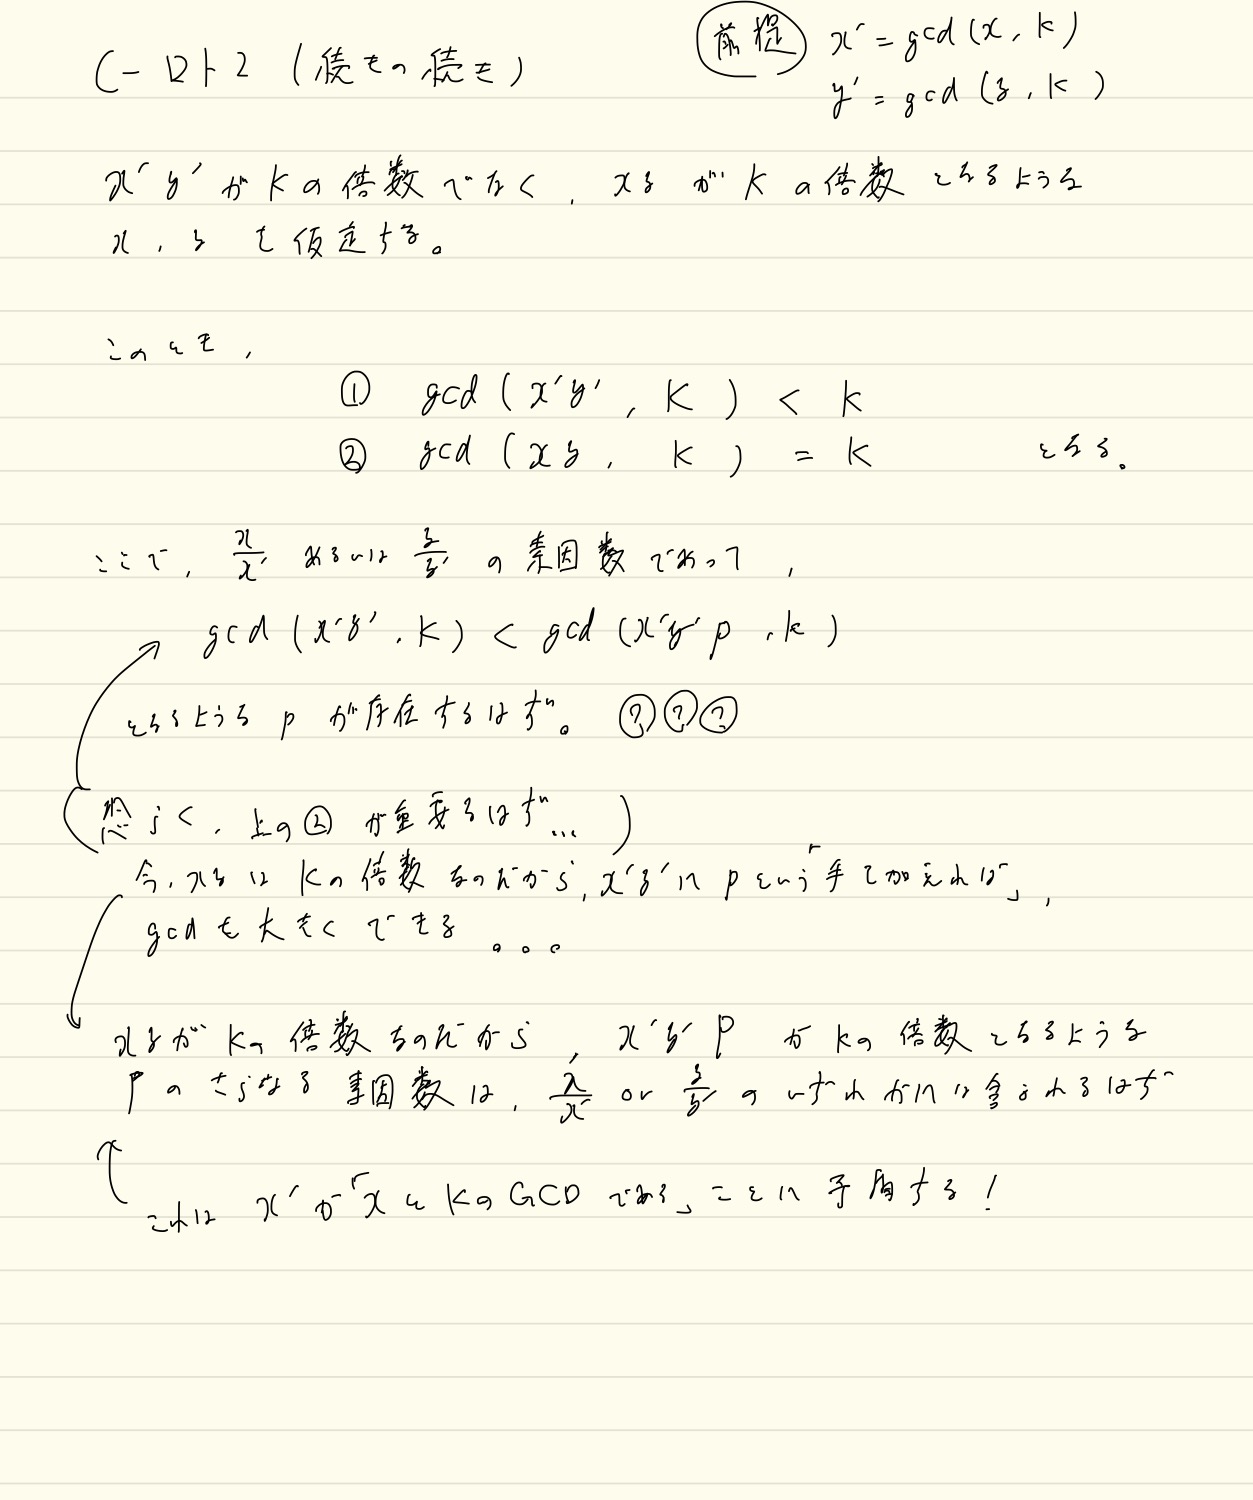 ルート2（続きの続き）
前提 x' = gcd(x, k)
y' = gcd(y, k)
x'y'がkの倍数でなく、xyがkの倍数となるような
x, y を仮定する。
このとき,
① gcd(x'y', k) < k
② gcd(xy, k) = k となる。
ここで, x/x' あるいは y/y' の素因数であって,
gcd(x'y', k) < gcd(x'y'p, k)
となるような p が存在するはず。???
(恐らく, 上の②が重要なはず...)
今, xyはkの倍数なのだから, x'y'にpという「手を加えれば」,
gcdを大きくできる 。。。
xyがkの倍数なのだから, x'y'Pがkの倍数となるような
Pのさらなる素因数は, x/x' or y/y' のいずれかには含まれるはず
これは x'が「xとkのGCDである」ことに矛盾する!